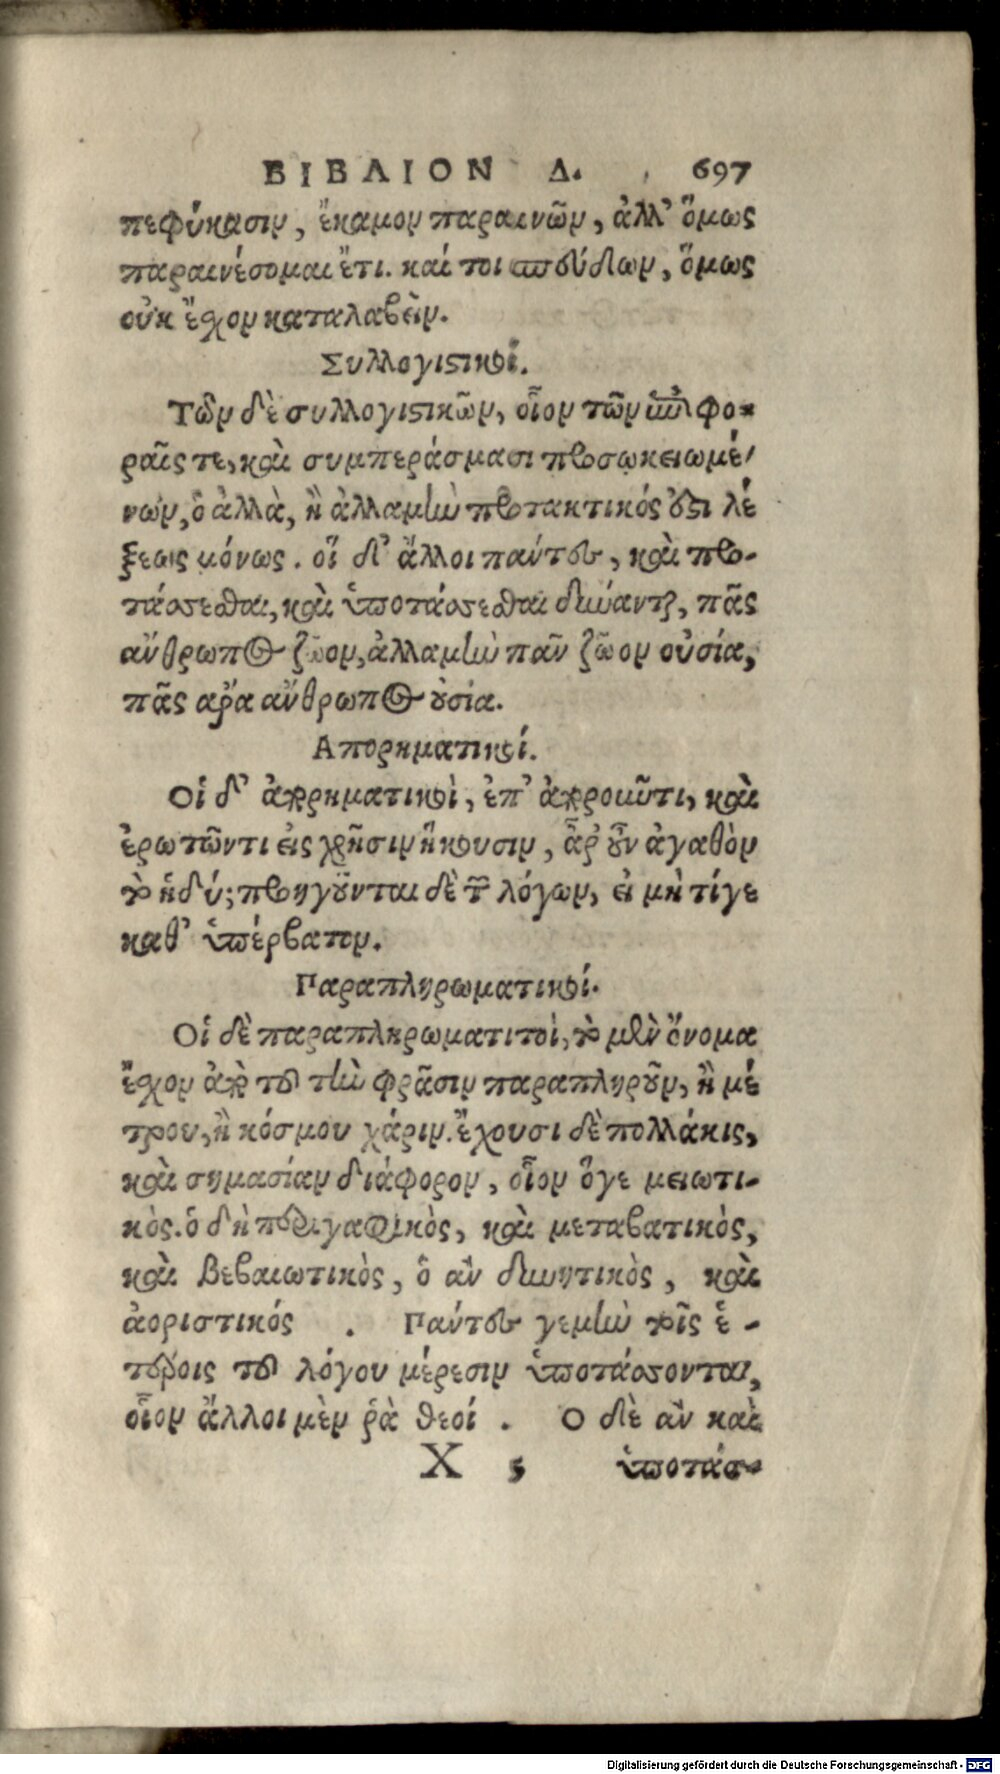 ΒΙΒΛΙΟΝ Δ. 697
πεφύκασιν, ἔκαμον παραινῶν, ἀλλ' ὅμως
παραινέσομαι ἔτι. καί τοι σπεύδων, ὅμως
οὐκ ἔχον καταλαβεῖν.
Συλλογιστικοί.
Τῶν δὲ συλλογιστικῶν, οἷον τῶν ἐπιφο-
ραῖς τε, καὶ συμπεράσμασι προσῳκειωμέ-
νων, ὁ ἀλλὰ, ἢ ἀλλαμὴν προτακτικός ἐστι λέ
ξεως μόνως. οἵ δ' ἄλλοι πάντες, καὶ προ-
τάσσεσθαι, καὶ ὑποτάσσεσθαι δύνανται, πᾶς
ἄνθρωπος ζῶον, ἀλλαμὴν πᾶν ζῶον οὐσία,
πᾶς ἄρα ἄνθρωπος οὐσία.
Απορηματικοί.
Οἱ δ' ἀπορηματικοὶ, ἐπ' ἀποροῦντι, καὶ
ἐρωτῶντι εἰς χρῆσιν ἥκουσιν, ἆρ' οὖν ἀγαθὸν
τὸ ἡδύ; προηγοῦνται δὲ τῶν λόγων, εἰ μὴ τίγε
καθ' ὑπέρβατον.
Παραπληρωματικοί.
Οἱ δὲ παραπληρωματιτοὶ, τὸ μὲν ὄνομα
ἔχον ἀπὸ τοῦ τὴν φρᾶσιν παραπληροῦν, ἢ μέ
τρου, ἢ κόσμου χάριν. ἔχουσι δὲ πολλάκις,
καὶ σημασίαν διάφορον, οἷον ὅγε μειωτι-
κὸς. ὁ δὴ περιγραφικὸς, καὶ μεταβατικὸς,
καὶ βεβαιωτικὸς, ὁ αν δυνητικὸς, καὶ
ἀοριστικός . Πάντες γεμὴν τοῖς ἑ-
τέροις τοῦ λόγου μέρεσιν ὑποτάσσονται,
οἷον ἄλλοι μὲν ῥὰ θεοί . Ο δὲ αν καὶ
X 5 ὑποτάσ-
Digitalisierung gefördert durch die Deutsche Forschungsgemeinschaft - DFG